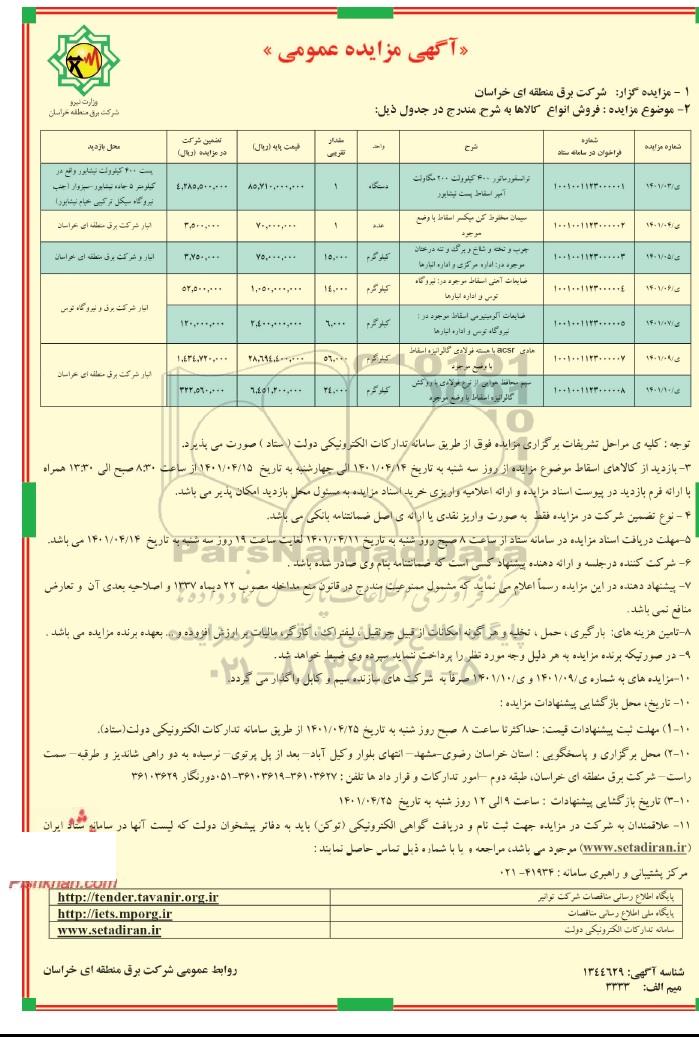 «آگهی مزایده عمومی »
وزارت نیرو
شرکت برق منطقه ای خراسان
۱ - مزایده گزار: شرکت برق منطقه ای خراسان
۲- موضوع مزایده : فروش انواع کالاها به شرح مندرج در جدول ذیل:
شماره مزایده | شماره فراخوان در سامانه ستاد | شرح | واحد | مقدار تقریبی | قیمت پایه (ریال) | تضمین شرکت در مزایده (ریال) | محل بازدید
ی/۱۴۰۱/۰۳ | ۱۰۰۱۰۰۱۱۲۳۰۰۰۰۰۱ | ترانسفورماتور ۴۰۰ کیلوولت ۲۰۰ مگاولت آمپر اسقاط پست نیشابور | دستگاه | ۱ | ۸۵,۷۱۰,۰۰۰,۰۰۰ | ۴,۲۸۵,۵۰۰,۰۰۰ | پست ۴۰۰ کیلوولت نیشابور واقع در کیلومتر ۵ جاده نیشابور-سبزوار (جنب نیروگاه سیکل ترکیبی خیام نیشابور)
ی/۱۴۰۱/۰۴ | ۱۰۰۱۰۰۱۱۲۳۰۰۰۰۰۲ | سیمان مخلوط کن میکسر اسقاط با وضع موجود | عدد | ۱ | ۷۰,۰۰۰,۰۰۰ | ۳,۵۰۰,۰۰۰ | انبار شرکت برق منطقه ای خراسان
ی/۱۴۰۱/۰۵ | ۱۰۰۱۰۰۱۱۲۳۰۰۰۰۰۳ | چوب و تخته و شاخ و برگ و تنه درختان موجود در: اداره مرکزی و اداره انبارها | کیلوگرم | ۱۵,۰۰۰ | ۷۵,۰۰۰,۰۰۰ | ۳,۷۵۰,۰۰۰ | انبار و شرکت برق منطقه ای خراسان
ی/۱۴۰۱/۰۶ | ۱۰۰۱۰۰۱۱۲۳۰۰۰۰۰۴ | ضایعات آهنی اسقاط موجود در: نیروگاه توس و اداره انبارها | کیلوگرم | ۱۴,۰۰۰ | ۱,۰۵۰,۰۰۰,۰۰۰ | ۵۲,۵۰۰,۰۰۰ | انبار شرکت برق و نیروگاه توس
ی/۱۴۰۱/۰۷ | ۱۰۰۱۰۰۱۱۲۳۰۰۰۰۰۵ | ضایعات آلومینیومی اسقاط موجود در : نیروگاه توس و اداره انبارها | کیلوگرم | ۶,۰۰۰ | ۲,۴۰۰,۰۰۰,۰۰۰ | ۱۲۰,۰۰۰,۰۰۰
ی/۱۴۰۱/۰۹ | ۱۰۰۱۰۰۱۱۲۳۰۰۰۰۰۷ | هادی acsr با هسته فولادی گالوانیزه اسقاط با وضع موجود | کیلوگرم | ۵۶,۰۰۰ | ۲۸,۶۹۴,۴۰۰,۰۰۰ | ۱,۴۳۴,۷۲۰,۰۰۰ | انبار شرکت برق منطقه ای خراسان
ی/۱۴۰۱/۱۰ | ۱۰۰۱۰۰۱۱۲۳۰۰۰۰۰۸ | سیم محافظ هوایی از نوع فولادی با روکش گالوانیزه اسقاط با وضع موجود | کیلوگرم | ۲۴,۰۰۰ | ۶,۴۵۱,۲۰۰,۰۰۰ | ۳۲۲,۵۶۰,۰۰۰
توجه : کلیه ی مراحل تشریفات برگزاری مزایده فوق از طریق سامانه تدارکات الکترونیکی دولت ( ستاد ) صورت می پذیرد.
۳- بازدید از کالاهای اسقاط موضوع مزایده از روز سه شنبه به تاریخ ۱۴۰۱/۰۴/۱۴ الی چهارشنبه به تاریخ ۱۴۰۱/۰۴/۱۵ از ساعت ۸:۳۰ صبح الی ۱۳:۳۰ همراه
با ارائه فرم بازدید در پیوست اسناد مزایده و ارائه اعلامیه واریزی خرید اسناد مزایده به مسئول محل بازدید امکان پذیر می باشد.
۴ - نوع تضمین شرکت در مزایده فقط به صورت واریز نقدی یا ارائه ی اصل ضمانتنامه بانکی می باشد.
۵-مهلت دریافت اسناد مزایده در سامانه ستاد از ساعت ۸ صبح روز شنبه به تاریخ ۱۴۰۱/۰۴/۱۱ لغایت ساعت ۱۹ روز سه شنبه به تاریخ ۱۴۰۱/۰۴/۱۴ می باشد.
۶- شرکت کننده درجلسه و ارائه دهنده پیشنهاد کسی است که ضمانتنامه بنام وی صادر شده باشد .
۷- پیشنهاد دهنده در این مزایده رسماً اعلام می نماید که مشمول ممنوعیت مندرج در قانون منع مداخله مصوب ۲۲ دیماه ۱۳۳۷ و اصلاحیه بعدی آن و تعارض
منافع نمی باشد.
۸-تامین هزینه های: بارگیری ، حمل ، تخلیه و هر گونه امکانات از قبیل جرثقیل ، لیفتراک ، کارگر، مالیات بر ارزش افزوده و .. بعهده برنده مزایده می باشد .
۹- در صورتیکه برنده مزایده به هر دلیل وجه مورد نظر را پرداخت ننماید سپرده وی ضبط خواهد شد.
۱۰-مزایده های به شماره ی/۱۴۰۱/۰۹ و ی/۱۴۰۱/۱۰ صرفا به شرکت های سازنده سیم و کابل واگذار می گردد.
۱۰- تاریخ، محل بازگشایی پیشنهادات مزایده :
۱۰-۱) مهلت ثبت پیشنهادات قیمت: حداکثر تا ساعت ۸ صبح روز شنبه به تاریخ ۱۴۰۱/۰۴/۲۵ از طریق سامانه تدارکات الکترونیکی دولت(ستاد).
۱۰-۲) محل برگزاری و پاسخگویی : استان خراسان رضوی-مشهد- انتهای بلوار وکیل آباد- بعد از پل پرتوی- نرسیده به دو راهی شاندیز و طرقبه- سمت
راست- شرکت برق منطقه ای خراسان، طبقه دوم -امور تدارکات و قرار داد ها تلفن : ۳۶۱۰۳۶۲۷-۳۶۱۰۳۶۱۹-۰۵۱دورنگار ۳۶۱۰۳۶۲۹
۱۰-۳) تاریخ بازگشایی پیشنهادات : ساعت ۹ الی ۱۲ روز شنبه به تاریخ ۱۴۰۱/۰۴/۲۵
۱۱- علاقمندان به شرکت در مزایده جهت ثبت نام و دریافت گواهی الکترونیکی (توکن) باید به دفاتر پیشخوان دولت که لیست آنها در سامانه ستاد ایران
(www.setadiran.ir) موجود می باشد، مراجعه و یا با شماره ذیل تماس حاصل نمایند :
مرکز پشتیبانی و راهبری سامانه : ۴۱۹۳۴- ۰۲۱
پایگاه اطلاع رسانی مناقصات شرکت توانیر | http://tender.tavanir.org.ir
پایگاه ملی اطلاع رسانی مناقصات | http://iets.mporg.ir
سامانه تدارکات الکترونیکی دولت | www.setadiran.ir
شناسه آگهی: ۱۳۴۴۶۲۹
میم الف: ۳۳۳۳
روابط عمومی شرکت برق منطقه ای خراسان
ParsNamadData
پایگاه اطلاع رسانی مناقصه و مزایده
۰۲۱-۸۸۳۴۹۶۷۰-۵